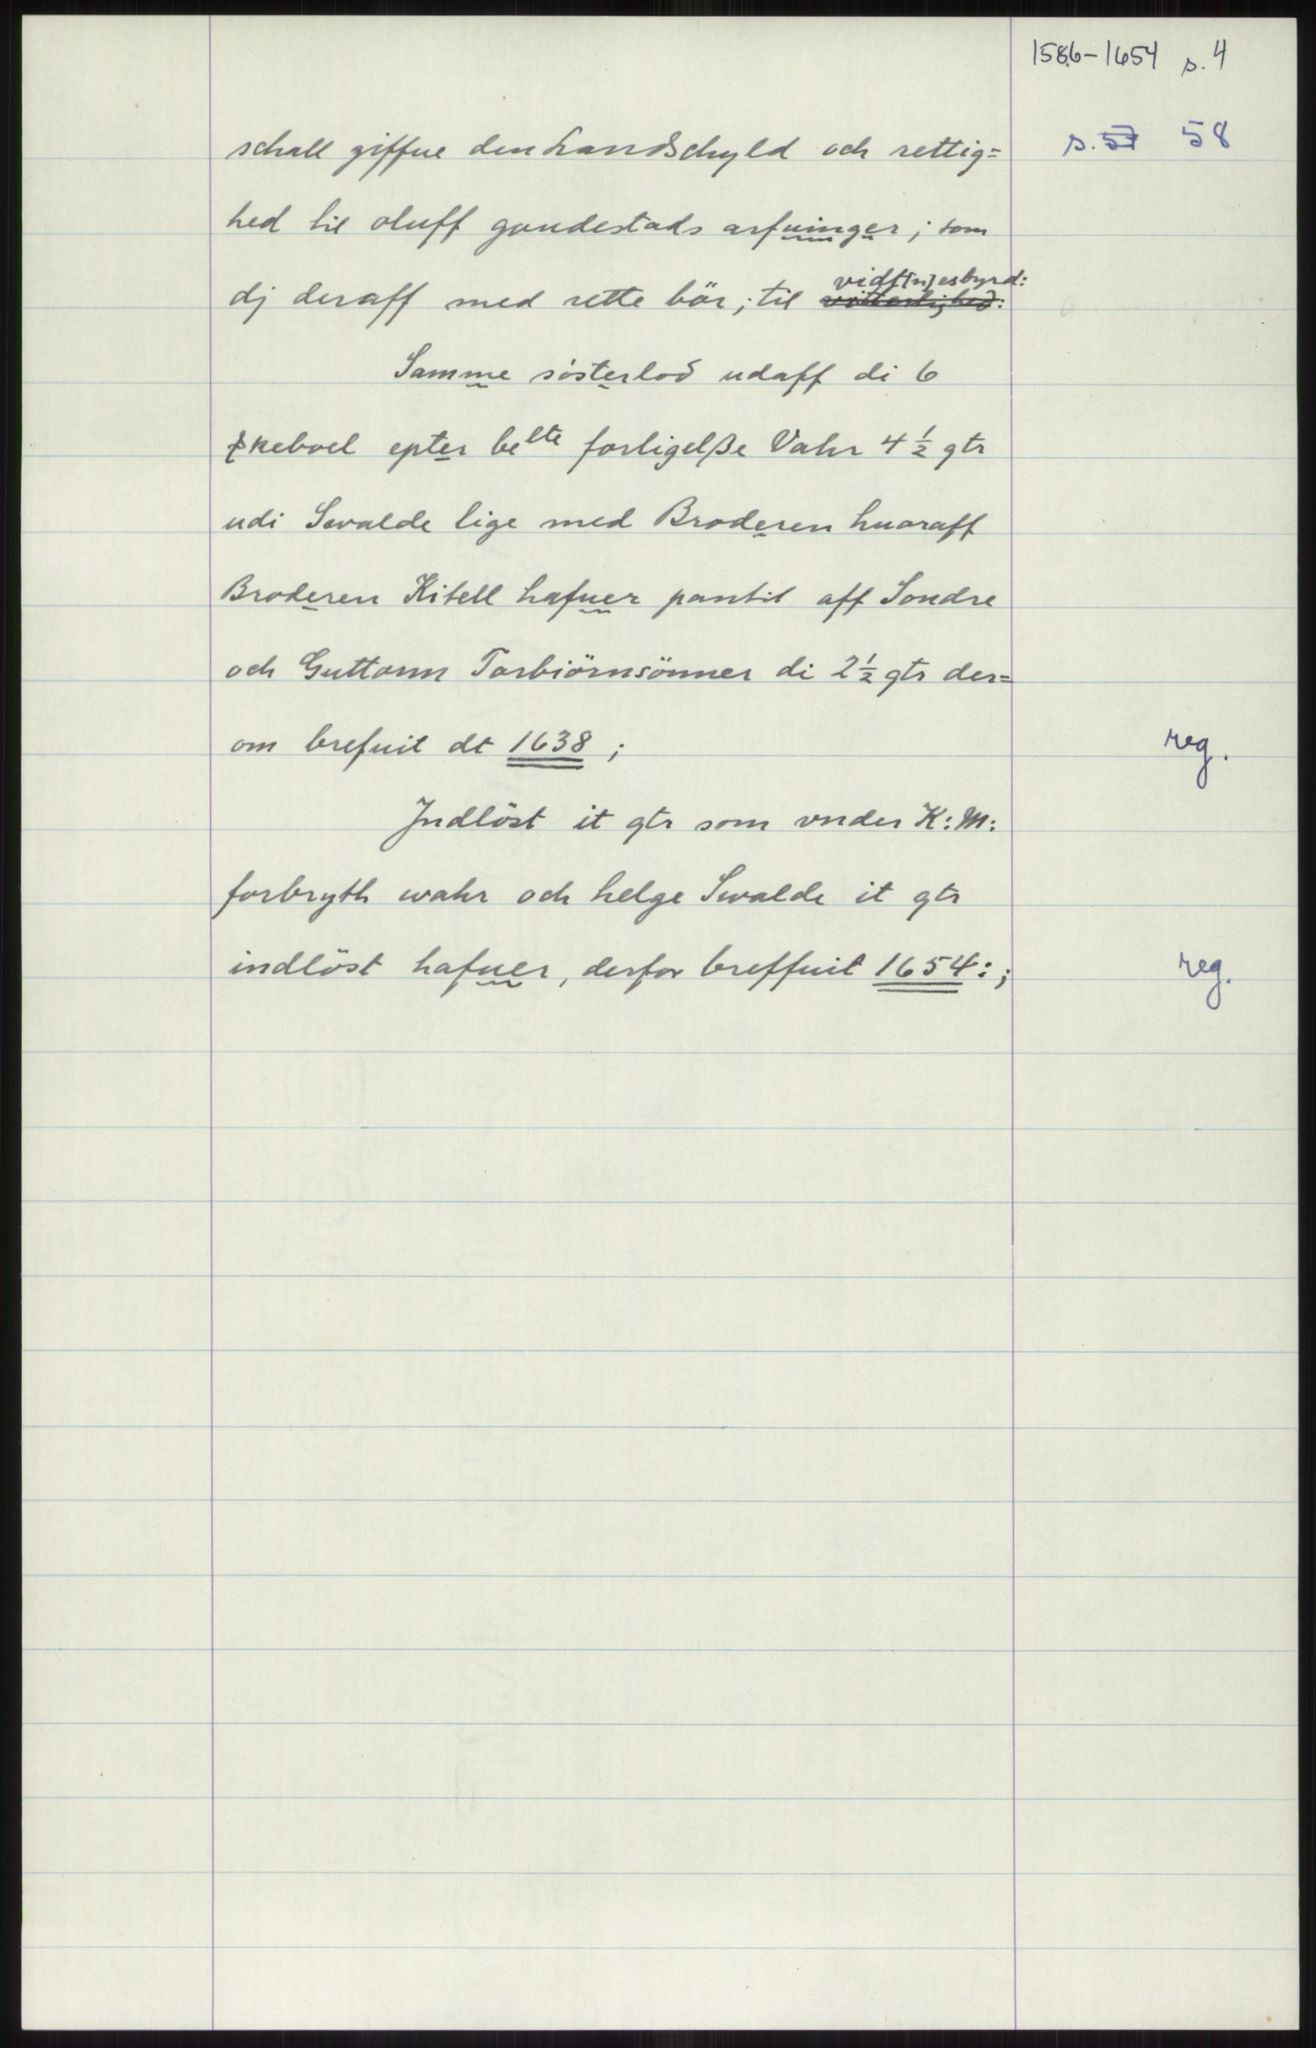 1586-1654 s. 4
s. 57 58
schall giffue den Landschyld och rettig=
hed til oluff gundestads arfuinger; som
dj deraff med rette bör; til vidt[n]esbyrd:
vitterlighed:
Samme sösterlod udaff di 6
keboel epter belte forligelße Vahr 4½ gtr
udi Swalde lige med Broderen huoraff
Broderen Kitell hafuer pantit aff Sondre
och Guttorm Torbiörnsönner di 2½ gtr der=
om brefuit dt 1638;
reg.
Indlöst it gtr som vnder K: M:
forbryth wahr och helge Swalde it gtr
indlöst hafuer, derfor breffuit 1654:;
reg.